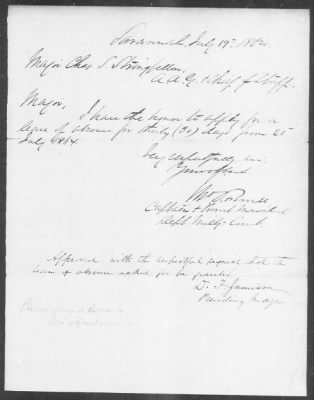 Savannah, July 19th 1864.
Major Chas. S. Stringfellow
A. A. G. & Chief of Staff.
Major,
I have the honor to apply for a
leave of absence for thirty (30) days from 25
July 1864.
Very respectfully sir,
Your obt
Captain & Provost Marshal
Dept. Milty. Court.
Approved with the respectful request that the
leave of absence asked for be granted
D. F. Jamison
Presiding Judge